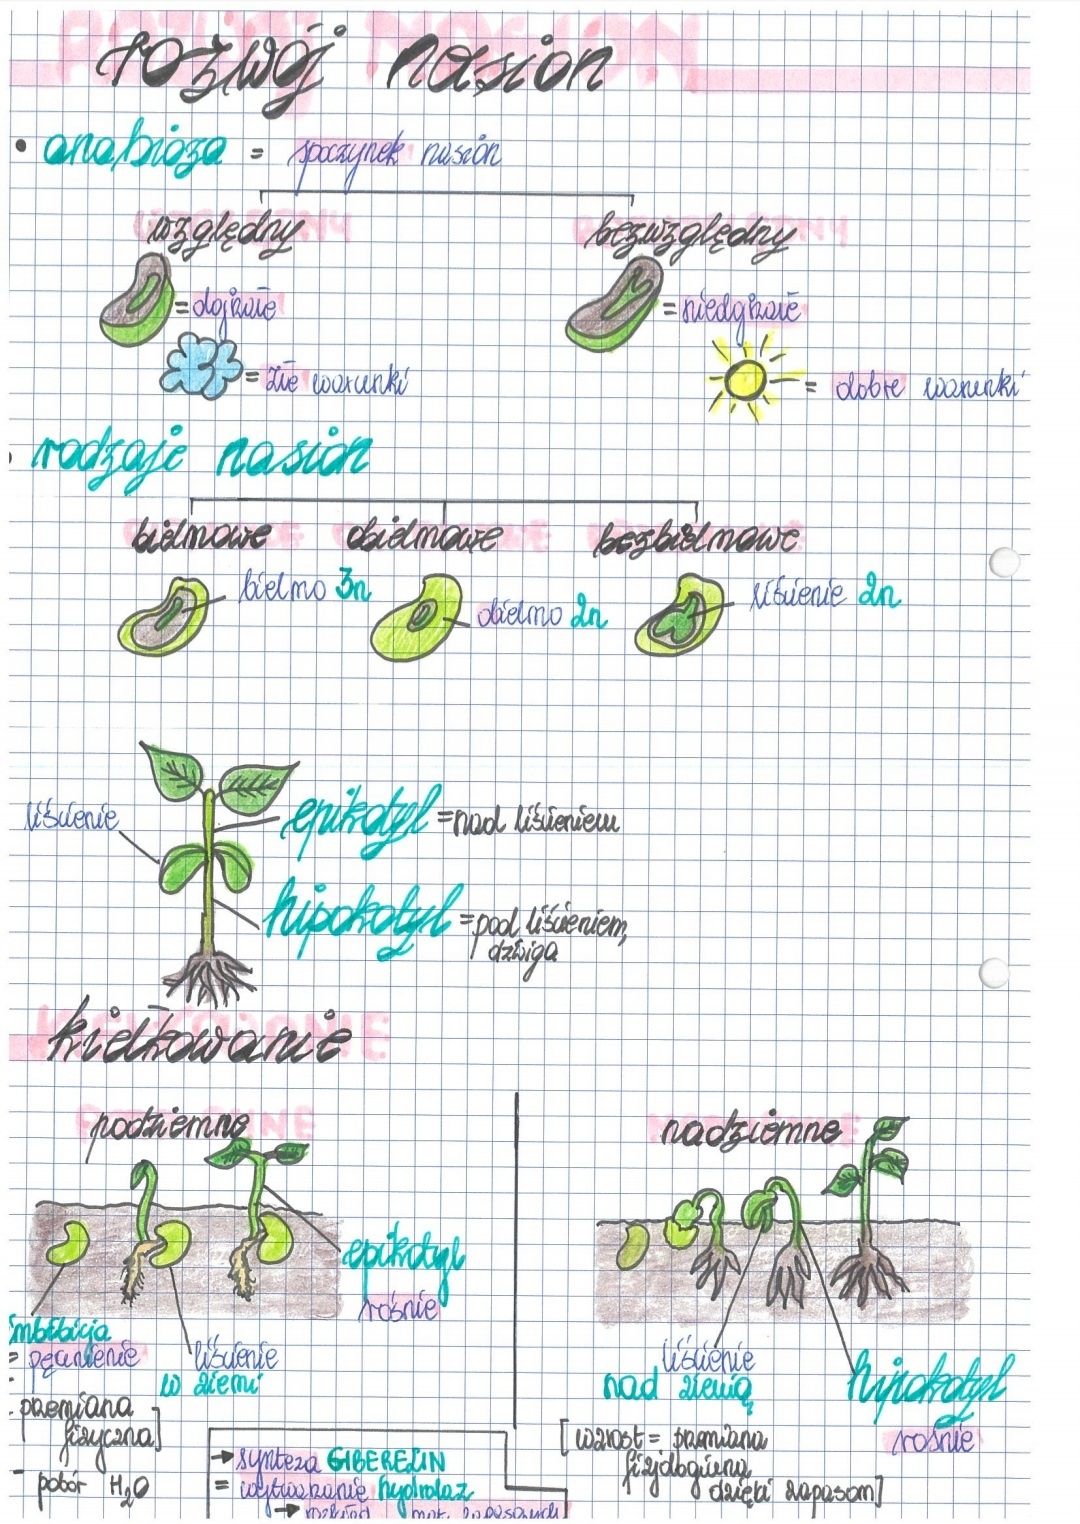 rozwój nasion
• anabioza = spoczynek nasion
względny bezwzględny
= dojrzałe = niedojrzałe
= złe warunki = dobre warunki
rodzaje nasion
bielmowe obielmowe bezbielmowe
bielmo 3n obielmo 2n liścienie 2n
liścienie
epikotyl = nad liścieniem
hipokotyl = pod liścieniem,
dźwiga
kiełkowanie
podziemne nadziemne
epikotyl
rośnie
imbibicja
= pęcznienie
liścienie
w ziemi
liścienie
nad ziemią
hipokotyl
rośnie
- przemiana
fizyczna]
- pobór H₂O
→ synteza GIBERELIN
= wytwarzanie hydrolaz
→ rozkład mat. zapasowych
[wzrost = przemiana
fizjologiczna
dzięki zapasom]